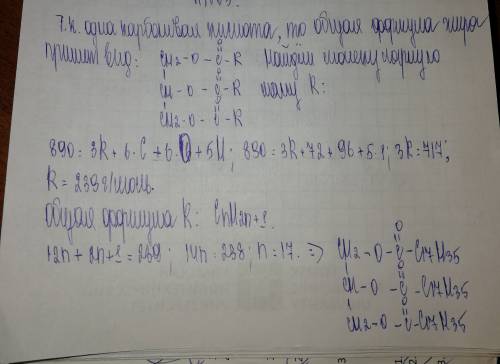 Т.к. одна карбоновая кислота, то общая формула жира
примет вид:
O
CH2-O-C-R Найдём молекулярную
O
CH-O-C-R массу R:
O
CH2-O-C-R
890 = 3R + 6·C + 6·O + 5H; 890 = 3R + 72 + 96 + 5·1; 3R = 717;
R = 239 г/моль.
Общая формула R: CnH2n+1.
12n + 2n+1 = 239; 14n = 238; n = 17. =>
O
CH2-O-C-C17H35
O
CH-O-C-C17H35
O
CH2-O-C-C17H35